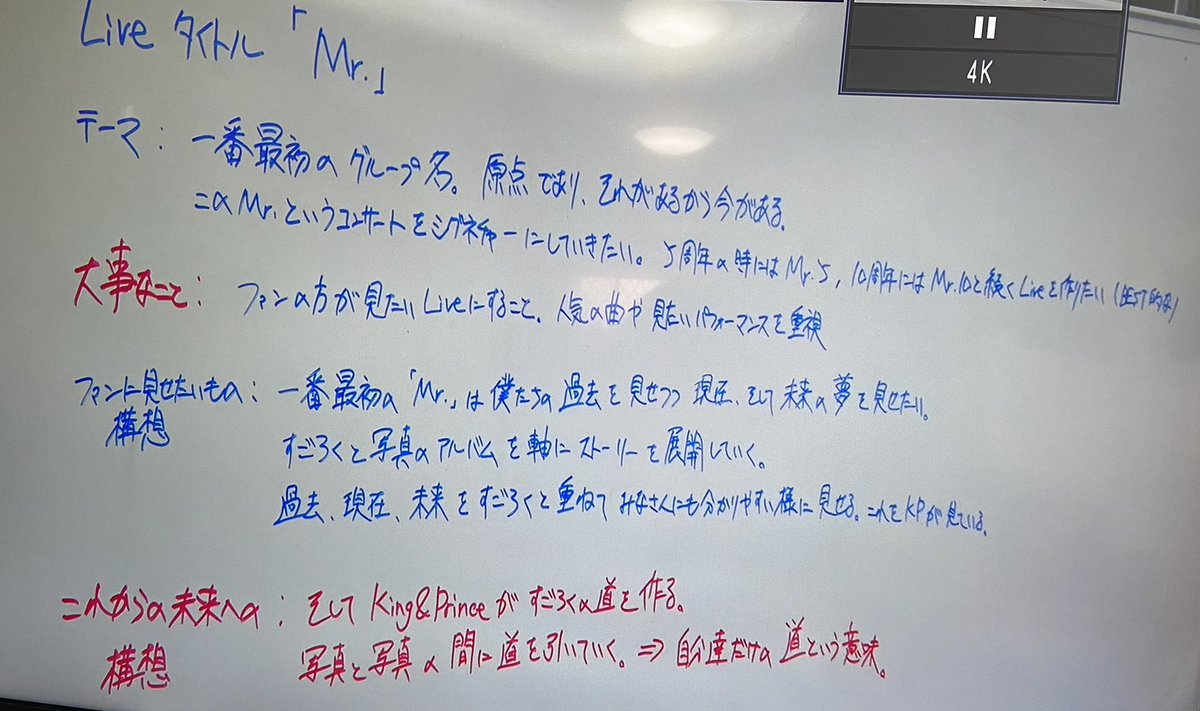 4K
Live タイトル「Mr.」
テーマ：一番最初のグループ名。原点であり、それがあるから今がある。
このMr.というコンサートをシグネチャーにしていきたい。5周年の時にはMr.5，10周年にはMr.10と続くLiveを作りたい（BEST的な）
大事なこと：ファンの方が見たいLiveにすること、人気の曲や見たいパフォーマンスを重視
ファンに見せたいもの：一番最初の「Mr.」は僕たちの過去を見せつつ現在、そして未来の夢を見せたい。
構想 すごろくと写真のアルバムを軸にストーリーを展開していく。
過去、現在、未来をすごろくと重ねてみなさんにも分かりやすい様に見せる。これをKPが見ている。
これからの未来への：そしてKing&Princeがすごろくの道を作る。
構想 写真と写真の間に道を引いていく。⇒自分達だけの道という意味。